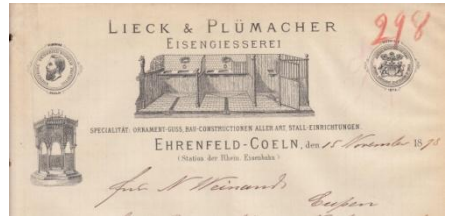 298
LIECK & PLÜMACHER
EISENGIESSEREI
SPECIALITÄT: ORNAMENT-GUSS, BAU-CONSTRUCTIONEN ALLER ART, STALL-EINRICHTUNGEN.
EHRENFELD-COELN, den 15 November 1898
(Station der Rhein. Eisenbahn)
N Weinand
Eupen